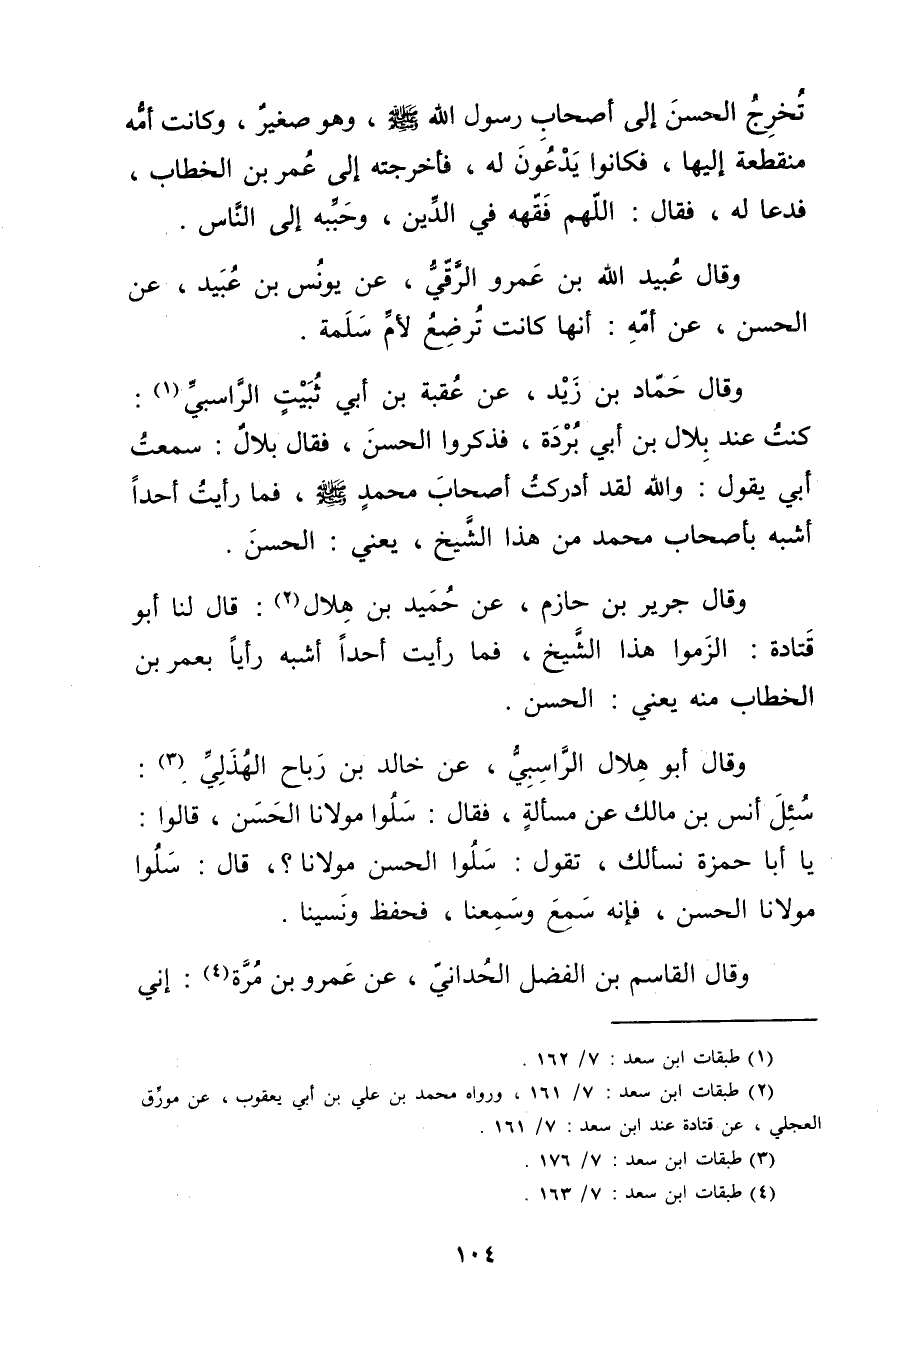 تُخرِجُ الحسنَ إلى أصحابِ رسول الله ﷺ ، وهو صغيرٌ ، وكانت أمُّه
منقطعة إليها ، فكانوا يَدْعُونَ له ، فأخرجته إلى عُمر بن الخطاب ،
فدعا له ، فقال : اللّهم فَقّهه في الدِّين ، وحَبِّبه إلى النَّاس .
وقال عُبيد الله بن عَمرو الرَّقّيُّ ، عن يونُس بن عُبَيد ، عن
الحسن ، عن أمّهِ : أنها كانت تُرضِعُ لأمِّ سَلَمة .
وقال حَمّاد بن زَيْد ، عن عُقبة بن أبي ثُبَيْتٍ الرَّاسبيِّ(١) :
كنتُ عند بِلال بن أبي بُرْدَة ، فذكروا الحسنَ ، فقال بلالٌ : سمعتُ
أبي يقول : والله لقد أدركتُ أصحابَ محمدٍ ﷺ ، فما رأيتُ أحداً
أشبه بأصحاب محمد من هذا الشَّيخ ، يعني : الحسنَ .
وقال جرير بن حازم ، عن حُمَيد بن هِلال(٢) : قال لنا أبو
قَتادة : الزَموا هذا الشَّيخ ، فما رأيت أحداً أشبه رأياً بعمر بن
الخطاب منه يعني : الحسن .
وقال أبو هِلال الرَّاسِبِيُّ ، عن خالد بن رَباح الهُذَليِّ (٣) :
سُئِلَ أنس بن مالك عن مسألةٍ ، فقال : سَلُوا مولانا الحَسَن ، قالوا :
يا أبا حمزة نسألك ، تقول : سَلُوا الحسن مولانا ؟، قال : سَلُوا
مولانا الحسن ، فإنه سَمِعَ وسَمِعنا ، فحفظ ونَسينا .
وقال القاسم بن الفضل الحُدانيّ ، عن عَمرو بن مُرَّة(٤) : إني
(١) طبقات ابن سعد : ٧/ ١٦٢ .
(٢) طبقات ابن سعد : ٧/ ١٦١ ، ورواه محمد بن علي بن أبي يعقوب ، عن مورِّق
العجلي ، عن قتادة عند ابن سعد : ٧/ ١٦١ .
(٣) طبقات ابن سعد : ٧/ ١٧٦ .
(٤) طبقات ابن سعد : ٧/ ١٦٣ .
١٠٤